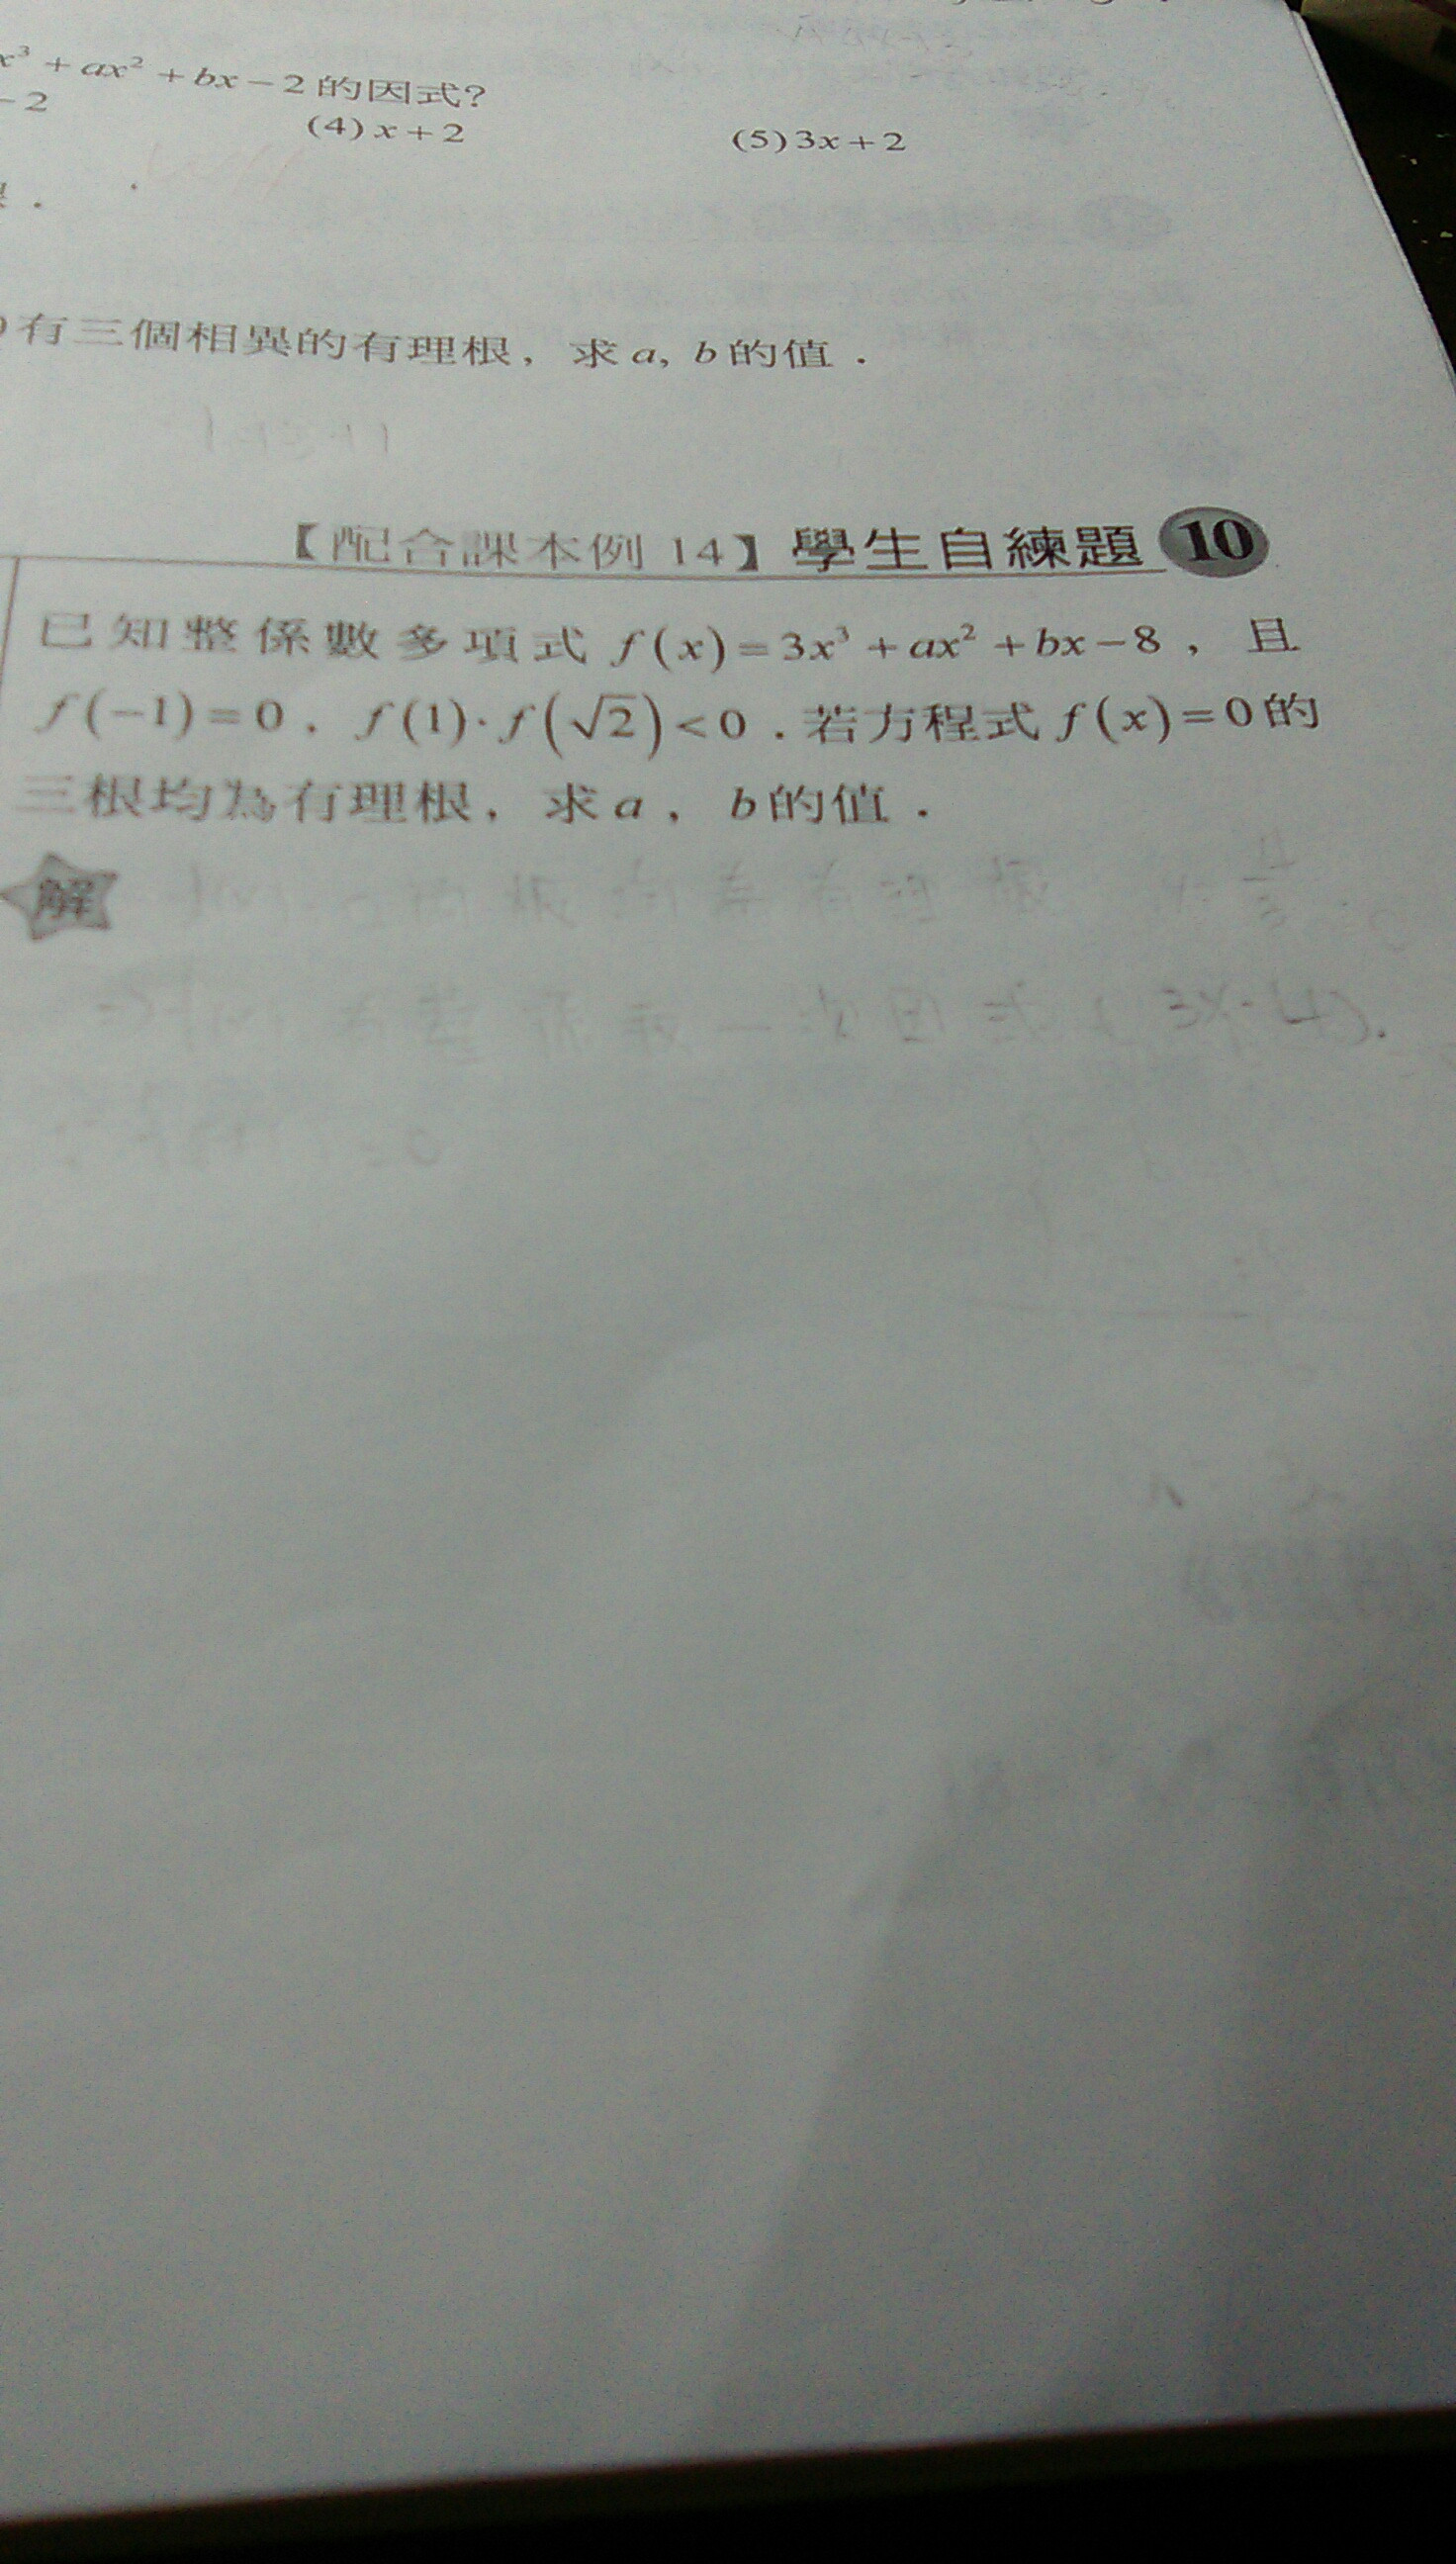 x³ + ax² + bx − 2 的因式?
− 2
(4) x + 2
(5) 3x + 2
有三個相異的有理根，求 a, b 的值．
【配合課本例 14】學生自練題 10
已知整係數多項式 f(x) = 3x³ + ax² + bx − 8，且
f(−1) = 0．f(1)·f(√2) < 0．若方程式 f(x) = 0 的
三根均為有理根，求 a，b 的值．
解